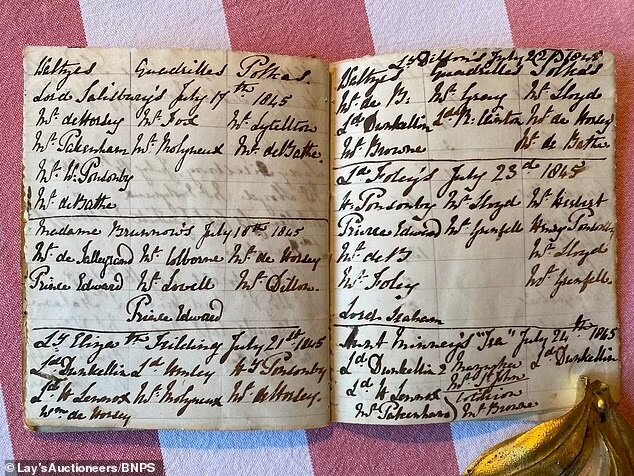 Waltzes Quadrilles Polkas
Lord Salisbury's July 17th 1845
Mr. de Horsey Mr. Ford Mr. Lyttelton
Mr. Pakenham Mr. Molyneux Mr. de Bathe
Mr. W. Ponsonby
Mr. de Bathe
Madame Brunnow's July 18th 1845
Mr. de Talleyrand Mr. Colborne Mr. de Horsey
Prince Edward Mr. Lovell Mr. Dillon
Prince Edward
Ly. Elizath. Feilding July 21st 1845
Ld. Dunkellin Ld. Worsley H. Ponsonby
Ld. H. Lennox Mr. Molyneux Mr. de Horsey
Wm de Horsey
Ly Dillon's July 22 1845
Waltzes Quadrilles Polkas
Mr. de B. Mr. Gray Mr. Lloyd
Ld. Dunkellin Ld. R. Clinton Mr. de Horsey
Mr. Browne Mr. de Bathe
Ld. Foley's July 23rd 1845
H. Ponsonby Mr. Lloyd Mr.
Prince Edward Mr. Grenfell Henry Ponsonby
Mr. de B. Mr. Lloyd
Mr. Foley Mr. Grenfell
Lord Graham
Aunt Minney's "Tea" July 24th 1845
Ld. Dunkellin 2 Ld. Dunkellin
Mr. St. John
Ld. H. Lennox Cotillon
Mr. Pakenham Mr. Browne
© Lay's Auctioneers/BNPS